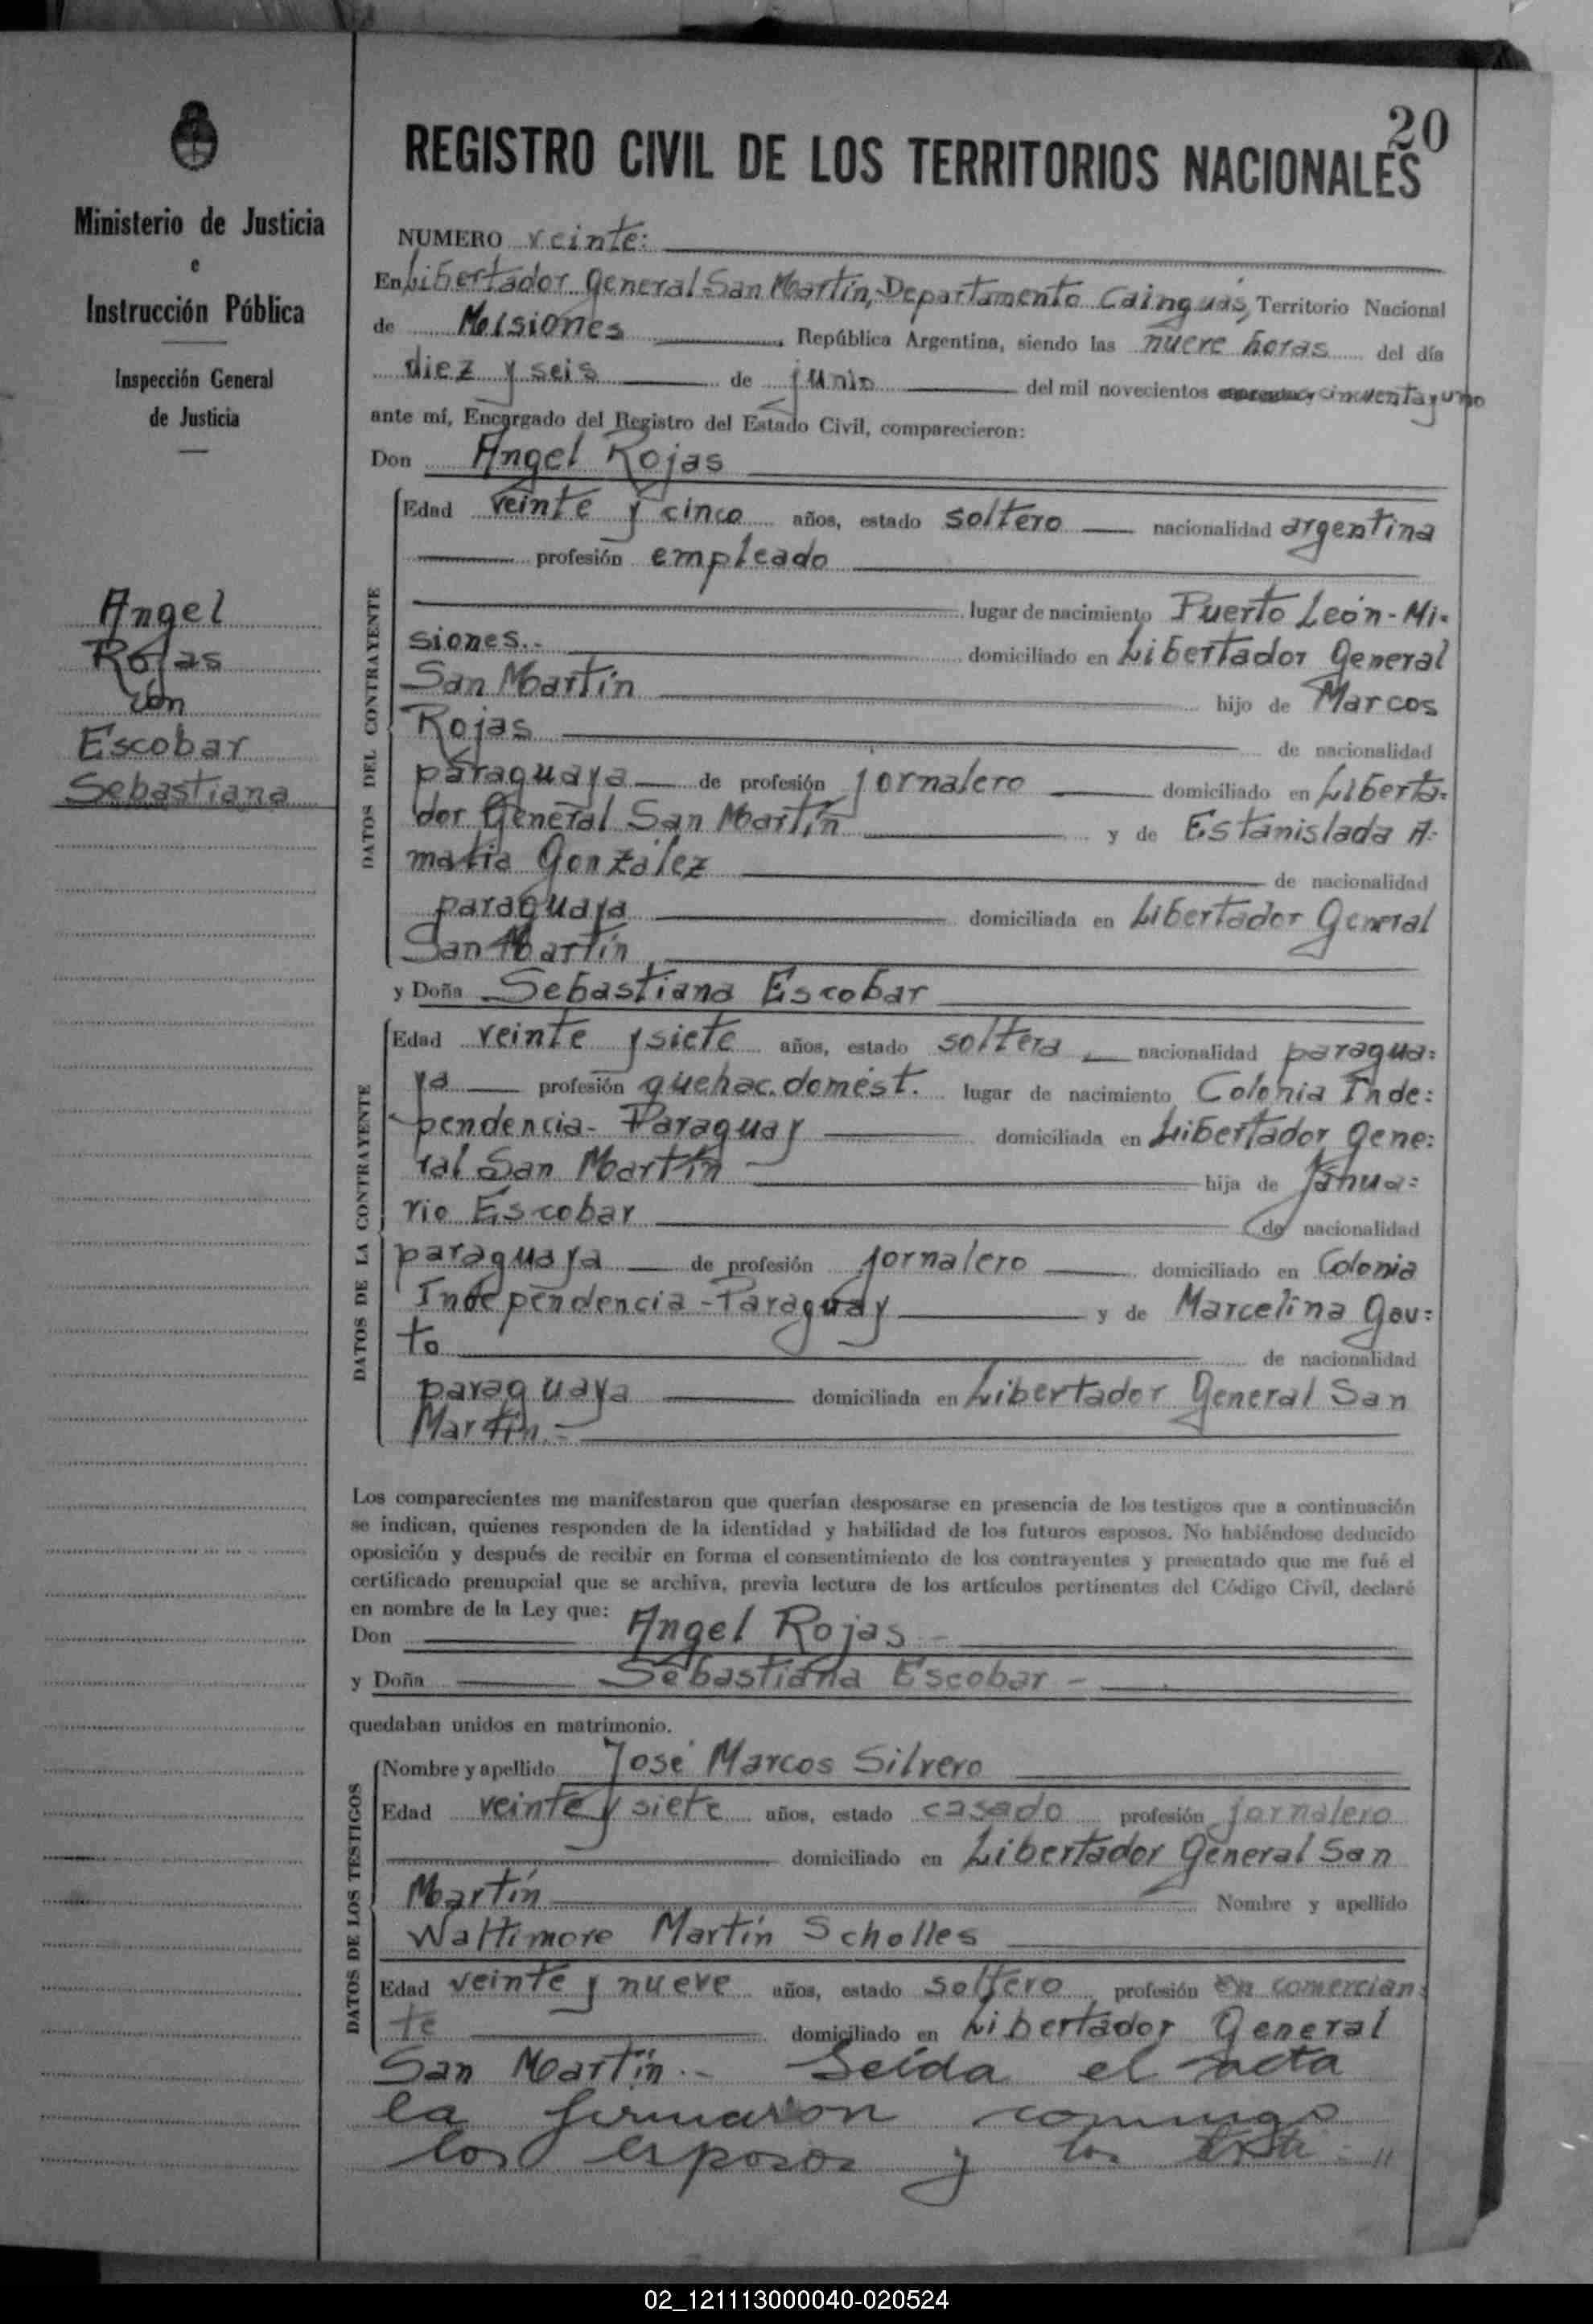 20
REGISTRO CIVIL DE LOS TERRITORIOS NACIONALES
Ministerio de Justicia
e
Instrucción Pública
Inspección General
de Justicia
Angel
Rojas
con
Escobar
Sebastiana
NUMERO veinte:
En Libertador General San Martín, Departamento Cainguás, Territorio Nacional
de Misiones República Argentina, siendo las nueve horas del día
diez y seis de junio del mil novecientos cincuenta y uno
ante mí, Encargado del Registro del Estado Civil, comparecieron:
Don Angel Rojas
DATOS DEL CONTRAYENTE
Edad veinte y cinco años, estado soltero nacionalidad argentina
profesión empleado
lugar de nacimiento Puerto León - Mi-
siones.- domiciliado en Libertador General
San Martín hijo de Marcos
Rojas de nacionalidad
paraguaya de profesión jornalero domiciliado en Liberta-
dor General San Martín y de Estanislada A-
matia González de nacionalidad
paraguaya domiciliada en Libertador General
San Martín
y Doña Sebastiana Escobar
DATOS DE LA CONTRAYENTE
Edad veinte y siete años, estado soltera nacionalidad paragua=
ya profesión quehac. domést. lugar de nacimiento Colonia Inde:
pendencia - Paraguay domiciliada en Libertador Gene:
ral San Martín hija de Janua=
rio Escobar de nacionalidad
paraguaya de profesión jornalero domiciliado en Colonia
Independencia - Paraguay y de Marcelina Gau:
to de nacionalidad
paraguaya domiciliada en Libertador General San
Martín.-
Los comparecientes me manifestaron que querían desposarse en presencia de los testigos que a continuación
se indican, quienes responden de la identidad y habilidad de los futuros esposos. No habiéndose deducido
oposición y después de recibir en forma el consentimiento de los contrayentes y presentado que me fué el
certificado prenupcial que se archiva, previa lectura de los artículos pertinentes del Código Civil, declaré
en nombre de la Ley que:
Don Angel Rojas -
y Doña Sebastiana Escobar -
quedaban unidos en matrimonio.
DATOS DE LOS TESTIGOS
Nombre y apellido José Marcos Silvero
Edad veinte y siete años, estado casado profesión jornalero
domiciliado en Libertador General San
Martín Nombre y apellido
Waltimore Martín Scholles
Edad veinte y nueve años, estado soltero profesión en comercian:
te domiciliado en Libertador General
San Martín.- Leída el acta
la firmaron conmigo
los esposos y los testi = "
02_121113000040-020524